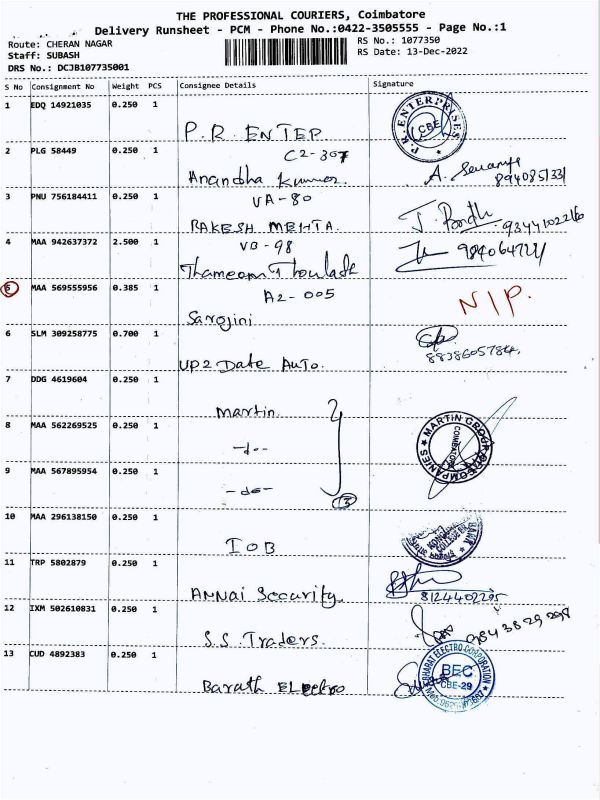 THE PROFESSIONAL COURIERS, Coimbatore
Delivery Runsheet - PCM - Phone No.:0422-3505555 - Page No.:1
Route: CHERAN NAGAR
Staff: SUBASH
DRS No.: DCJB107735001
RS No.: 1077350
RS Date: 13-Dec-2022
S No Consignment No Weight PCS Consignee Details Signature
1 EDQ 14921035 0.250 1
P.R. ENTER P.R. ENTERPRISES CBE
2 PLG 58449 0.250 1 C2-307
Anandha Kumar.
3 PNU 756184411 0.250 1 VA-80
RAKESH MEHTA. 9344102216
4 MAA 942637372 2.500 1 VB-98
5 MAA 569555956 0.385 1 A2-005
Sarojini N/P.
6 SLM 309258775 0.700 1
UP2 Date Auto. 8838605784.
7 DDG 4619604 0.250 1
Martin.
8 MAA 562269525 0.250 1
-do-
MARTIN GROUP OF COMPANIES
9 MAA 567895954 0.250 1
-do-
3
10 MAA 296138150 0.250 1
IOB
11 TRP 5802879 0.250 1
ANNAI Security. 8124402295
12 IXM 502610831 0.250 1
S.S. Traders. 9843829298
13 CUD 4892383 0.250 1
Barath Electro BHARAT ELECTRO CORPORATION BEC CBE-29